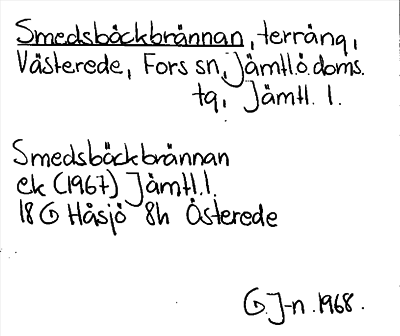 Smedsbäckbrännan, terräng,
Västerede, Fors sn, Jämtl.ö.doms.
tg, Jämtl. l.
Smedsbäckbrännan
ek (1967) Jämtl.l.
18 G Håsjö 8h Österede
G. J-n. 1968.